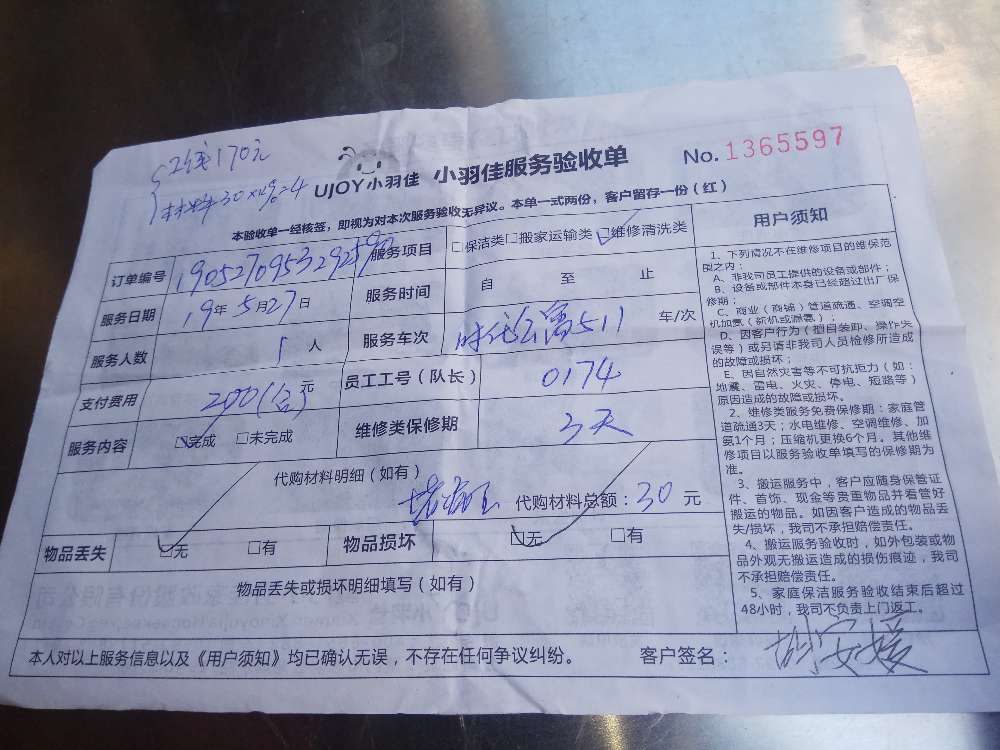 工钱170元
材料30
UJOY小羽佳 小羽佳服务验收单 No.1365597
本验收单一经核签，即视为对本次服务验收无异议。本单一式两份，客户留存一份（红）
订单编号 服务项目 □保洁类□搬家运输类□维修清洗类
服务日期 19年5月27日 服务时间 自 至 止
服务人数 1人 服务车次 时代公寓511 车/次
支付费用 200(含)元 员工工号（队长） 0174
服务内容 □完成 □未完成 维修类保修期 3天
代购材料明细（如有）
代购材料总额：30元
物品丢失 □无 □有 物品损坏 □无 □有
物品丢失或损坏明细填写（如有）
本人对以上服务信息以及《用户须知》均已确认无误，不存在任何争议纠纷。 客户签名：胡安媛
用户须知
1、下列情况不在维修项目的维保范
围之内：
A、非我司员工提供的设备或部件；
B、设备或部件本身已经超过出厂保
修期；
C、商业（商铺）管道疏通、空调空
机加氟（新机或漏氟）；
D、因客户行为（擅自装卸、操作失
误等）或另请非我司人员检修所造成
的故障或损坏；
E、因自然灾害等不可抗拒力（如：
地震、雷电、火灾、停电、短路等）
原因造成的故障或损坏。
2、维修类服务免费保修期：家庭管
道疏通3天；水电维修、空调维修、加
氟1个月；压缩机更换6个月。其他维
修项目以服务验收单填写的保修期为
准。
3、搬运服务中，客户应随身保管证
件、首饰、现金等贵重物品并看管好
搬运的物品。如因客户造成的物品丢
失/损坏，我司不承担赔偿责任。
4、搬运服务验收时，如外包装或物
品外观无搬运造成的损伤痕迹，我司
不承担赔偿责任。
5、家庭保洁服务验收结束后超过
48小时，我司不负责上门返工。